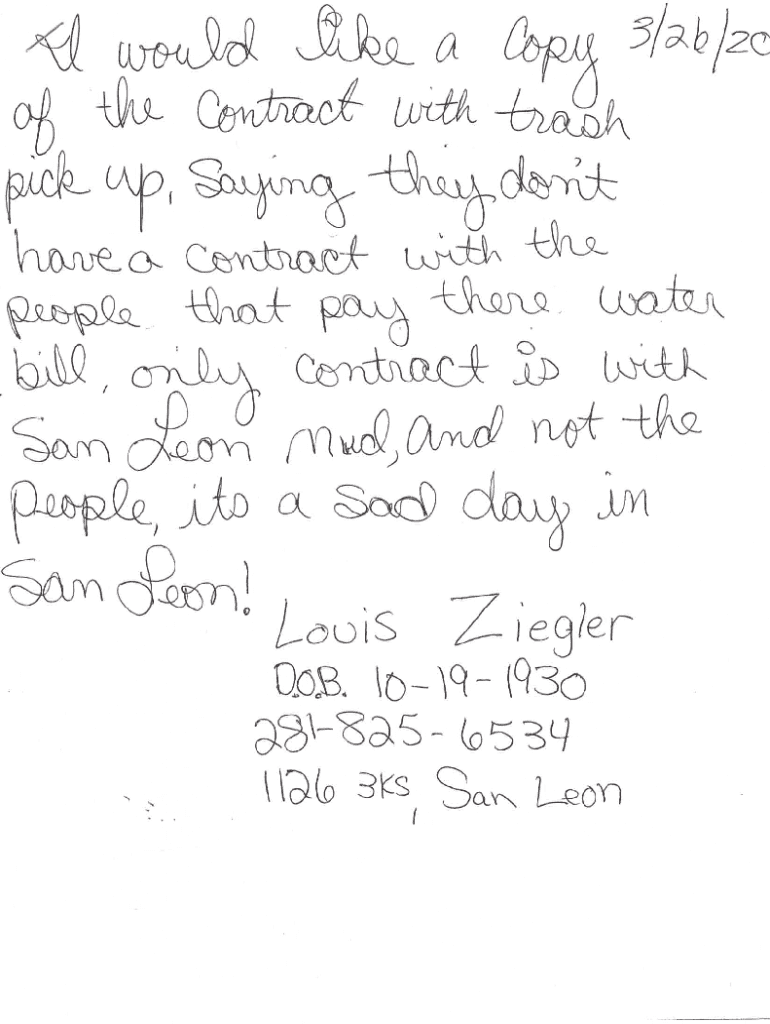 I would like a Copy 3/26/20
of the Contract with trash
pick up, Saying they don't
have a contract with the
people that pay there water
bill, only contract is with
San Leon Mud, and not the
People, its a sad day in
San Leon!
Louis Ziegler
D.O.B. 10-19-1930
281-825-6534
1126 3KS, San Leon